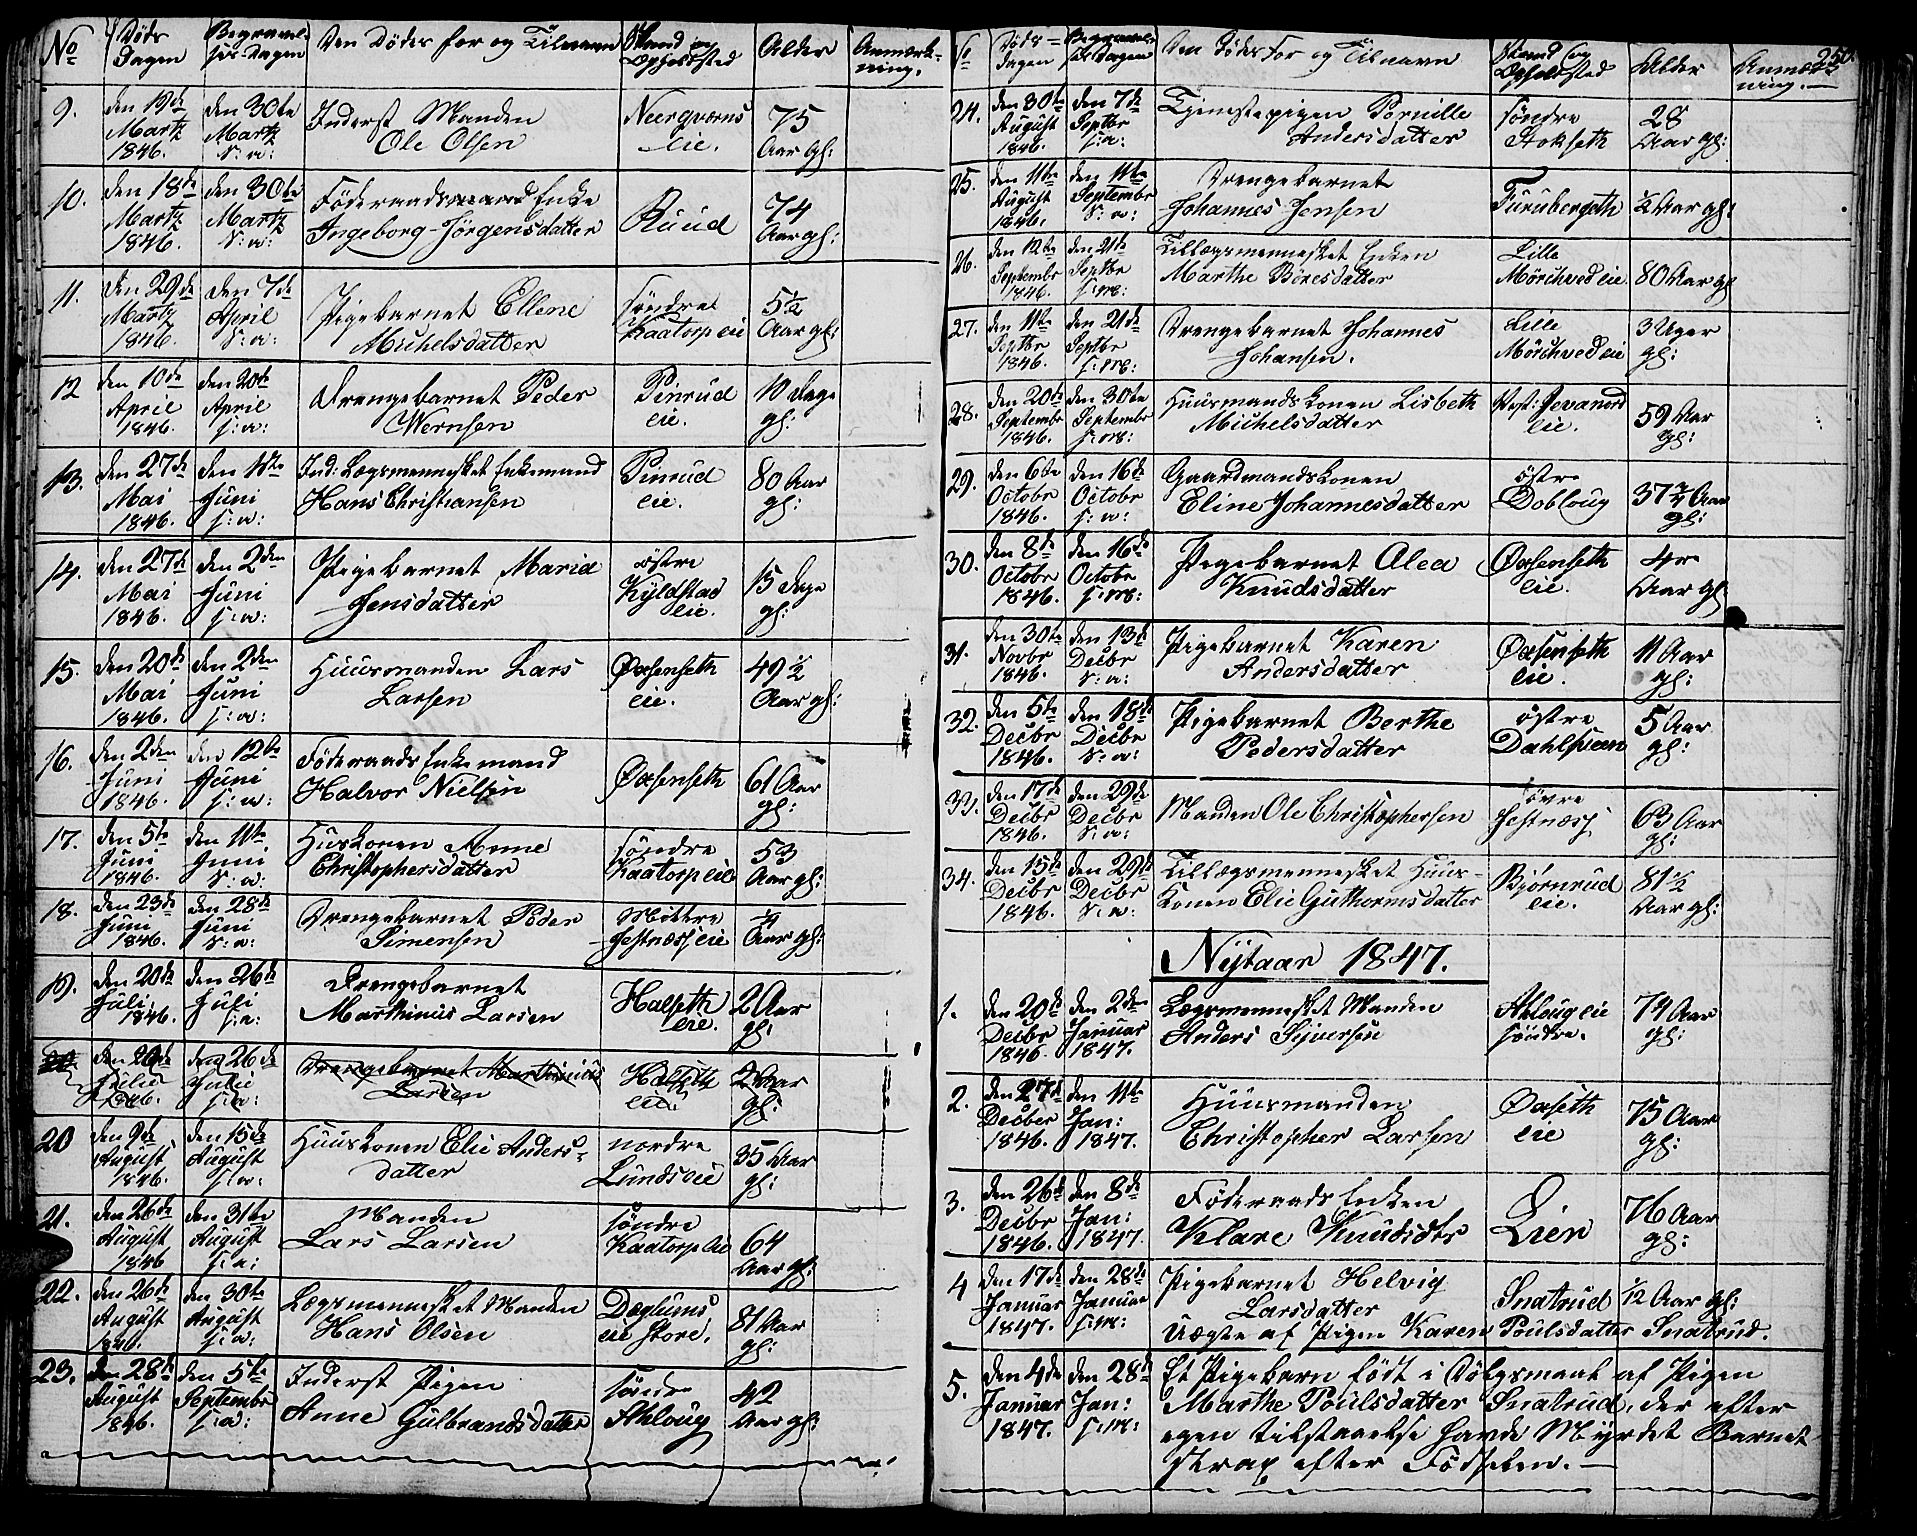 No
Døds Dagen
Begravelses-Dagen
Den Dødes for og Tilnavn
Stand og Opholdsted
Alder
Anmærkning.
9.
den 19de Martz 1846.
den 30te Martz s: a:
Inderst Manden
Ole Olsen
Neergværns eie.
75 Aar gl:
10.
den 18de Martz 1846.
den 30te Martz s: a:
Föderaads Enke
Ingeborg Jörgensdatter
Ruud
74 Aar gl:
11.
den 29de Martz 1846.
den 7de April s: a:
Pigebarnet Ellene
Michelsdatter
söndre Kaatorp eie
5½ Aar gl:
12
den 10de April 1846.
den 20de April s: a:
Drengebarnet Peder
Wernsen
Pinrud eie.
10 Dage gl:
13.
den 27de Mai 1846.
den 11te Juni s: a:
Ind: Lægsmennesket Enkemand
Hans Christiansen
Pinrud eie.
80 Aar gl:
14.
den 27de Mai 1846.
den 2den Juni s: a:
Pigebarnet Maria
Jensdatter
östre Kyldstad eie.
15 Dage gl:
15.
den 20de Mai 1846.
den 2den Juni s: a:
Huusmanden Lars
Larsen
Øxsenseth eie.
49½ Aar gl:
16.
den 2den Juni 1846.
den 12te Juni s: a:
Föderaads Enkemand
Halvor Nielsen
Øxsenseth
61 Aar gl:
17.
den 5te Juni 1846.
den 11te Juni s: a:
Huskonen Anne
Christophersdatter
söndre Kaatorp eie
53 Aar gl:
18.
den 23de Juni 1846.
den 28de Juni s: a:
Drengebarnet Peder
Simensen
Mittere Festnæss eie
¼ Aar gl:
19.
den 20de Juli 1846.
den 26de Juli s: a:
Drengebarnet
Marthinus Larsen
Halseth eie.
2 Aar gl:
den 20de Julie 1846.
den 26de Julie s: a:
Drengebarnet Marthinius
Larsen
Halseth eie.
2 Aar gl:
20
den 9de August 1846.
den 15de August s: a:
Huuskonen Elie Anders-
datter
nordre Lunds eie
35 Aar gl:
21.
den 26de August 1846
den 31te August s: a:
Manden
Lars Larsen
söndre Kaatorp eie
64 Aar gl:
22.
den 26de August 1846.
den 30te August s: a:
Lægsmennesket Manden
Hans Olsen
Daglums eie store.
81 Aar gl:
23.
den 28de August 1846.
den 5te Septembr s: a:
Inderst Pigen
Anne Gulbrandsdatter
söndre Ahloug
42 Aar gl:
Døds-dagen
Begravelses Dagen
Den Dødes For og Tilnavn
Stand og Opholdsted
Alder
Anmærkning.
250.
24.
den 30te August 1846.
den 7de Septbr s: a:
Tjenestepigen Pernille
Andersdatter
söndre Stokseth
28 Aar gl:
25.
den 11te August 1846.
den 11te Septembr s: a:
Drengebarnet
Johannes Jensen
Furubergeth
Aar gl:
26.
den 12te Septembr 1846.
den 21de Septbr s: m:
Tillægsmennesket Enken
Marthe Böresdatter
Lille Mörchved eie
80 Aar gl
27.
den 11te Septbr 1846.
den 21de Septbr s: m:
Drengebarnet Johannes
Johansen.
Lille Mörchved eie
3 Uger gl:
28.
den 20de Septembr 1846.
den 30te Septembr s: m:
Huusmandskonen Lisbeth
Michelsdatter
Vest: Jevanord eie.
59 Aar gl:
29.
den 6te Octobr 1846.
den 16de Octobr s: a:
Gaardmandskonen
Eline Johannesdatter
östre Dobloug
37¾ Aar gl:
30.
den 8de Octobr 1846.
den 16de Octobr s: m:
Pigebarnet Alea
Knudsdatter
Øxsenseth eie.
Aar gl:
31.
den 30te Novbr 1846.
den 13de Decbr s: a:
Pigebarnet Karen
Andersdatter
Øxsenseth eie.
11 Aar gl:
32.
den 5te Decbr 1846.
den 18de Decbr s: a:
Pigebarnet Berthe
Pedersdatter
östre Dahlsveen
5 Aar gl:
33.
den 17de Decbr 1846.
den 29de Decbr s: a:
Manden Ole Christophersen
övre Festnæss
63 Aar gl:
34.
den 15de Decbr 1846.
den 29de Decbr s: a:
Tillægsmennesket Huus-
Konen Elie Guthormsdatter
Bjørnrud eie.
81½ Aar gl:
Nytaar 1847.
1.
den 20de Decbr 1846.
den 2den Januar 1847.
Lægsmennesket Manden
Anders Syversen
Ahloug eie söndre.
74 Aar gl:
2.
den 27de Decber 1846.
den 11te Jan: 1847.
Huusmanden
Christopher Larsen
Oxseth eie
75 Aar gl:
3.
den 26de Decbr 1846.
den 8de Jan: 1847.
Föderaads Enken
Klare Knudsdtr
Lien
76 Aar gl:
4
den 17de Januar 1847.
den 28de Januar s: m:
Pigebarnet Helvig
Larsdatter
Snatrud
1/12 Aar gl:
Uægte af Pigen Karen Poulsdatter Snatrud.
5.
den 4de Januar 1847.
den 28de Jan: s: m:
Et Pigebarn födt i Dölgsmaal af Pigen
Marthe Poulsdatter Snatrud, der efter
egen tilstaaelse havde Myrdet Barnet
strax efter Födselen.